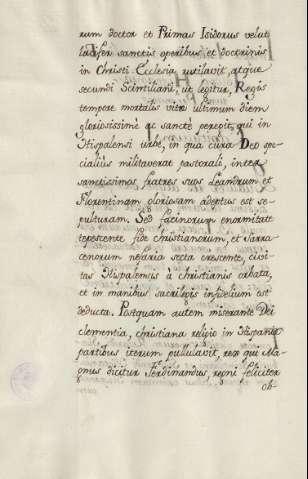 rum doctor et Primas Isidorus velut
Lucifer sanctis operibus et doctrinis
in Christi Ecclesia rutilavit, atque
secundi Scintiliani, ut legitur, Regis
tempore mortalis vitæ ultimum diem
gloriosissimè ac sanctè peregit, qui in
Hispalensi urbe, in qua cura Deo spe-
cialius militaverat pastorali, inter
sanctissimos fratres suos Leandrum et
Florentinam gloriosam adeptus est se-
pulturam. Sed facinorum enormitate
tepescente fide christianorum, et Sarra-
cenorum nefaria secta crescente, civi-
tas Hispalensis à christianis orbata,
et in manibus sacrilegis infidelium est
deducta. Postquam autem miserante Dei
clementia, christiana religio in Hispaniæ
partibus iterum pullulavit, rex qui Ma-
gnus dicitur Ferdinandus, regni feliciter
ob-